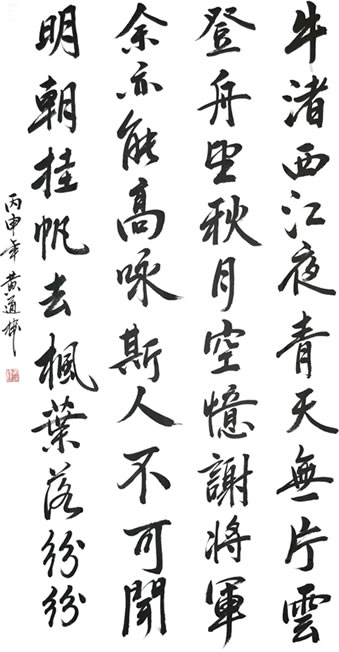 牛渚西江夜青天無片雲
登舟望秋月空憶謝將軍
余亦能高咏斯人不可聞
明朝挂帆去楓葉落紛紛
丙申年黄通